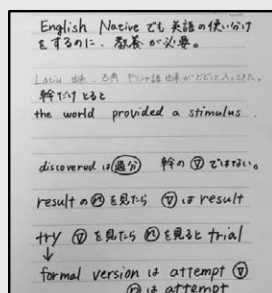 English Native でも 英語の使い分け
をするのに、教養が必要。
Latin 由来、古典ギリシャ語由来がどどっと入ってきた。
幹だけとると
the world provided a stimulus.
discovered は 過分 幹の Ⓥ ではない。
result の ⓝ を見たら Ⓥ は result
try Ⓥ を見たら ⓝ を見ると trial
↓
formal version は attempt Ⓥ
ⓝ は attempt